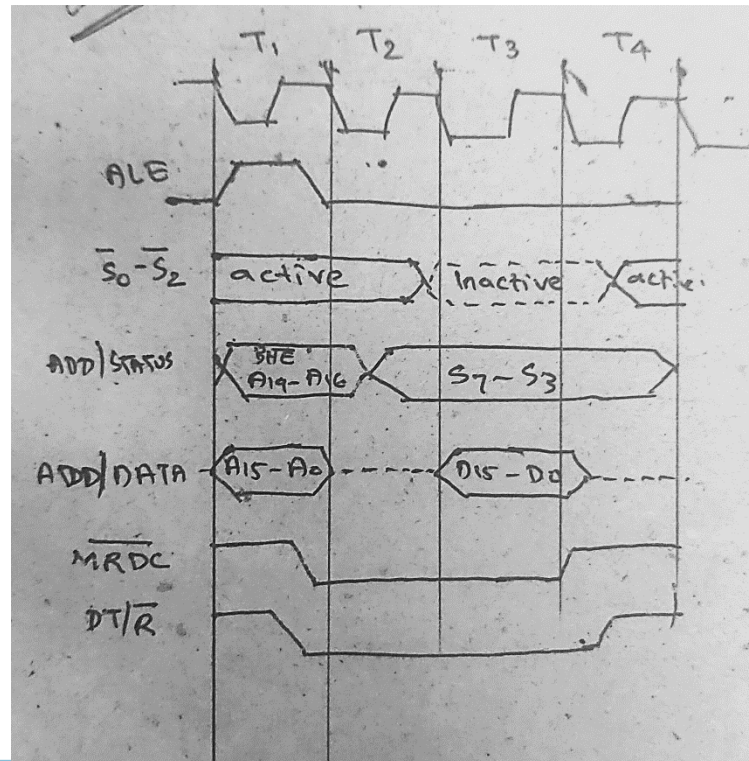 T1 T2 T3 T4
ALE
S̅0-S̅2 active Inactive active
ADD/STATUS B̅H̅E̅
A19-A16 S7-S3
ADD/DATA A15-A0 D15-D0
M̅R̅D̅C̅
DT/R̅